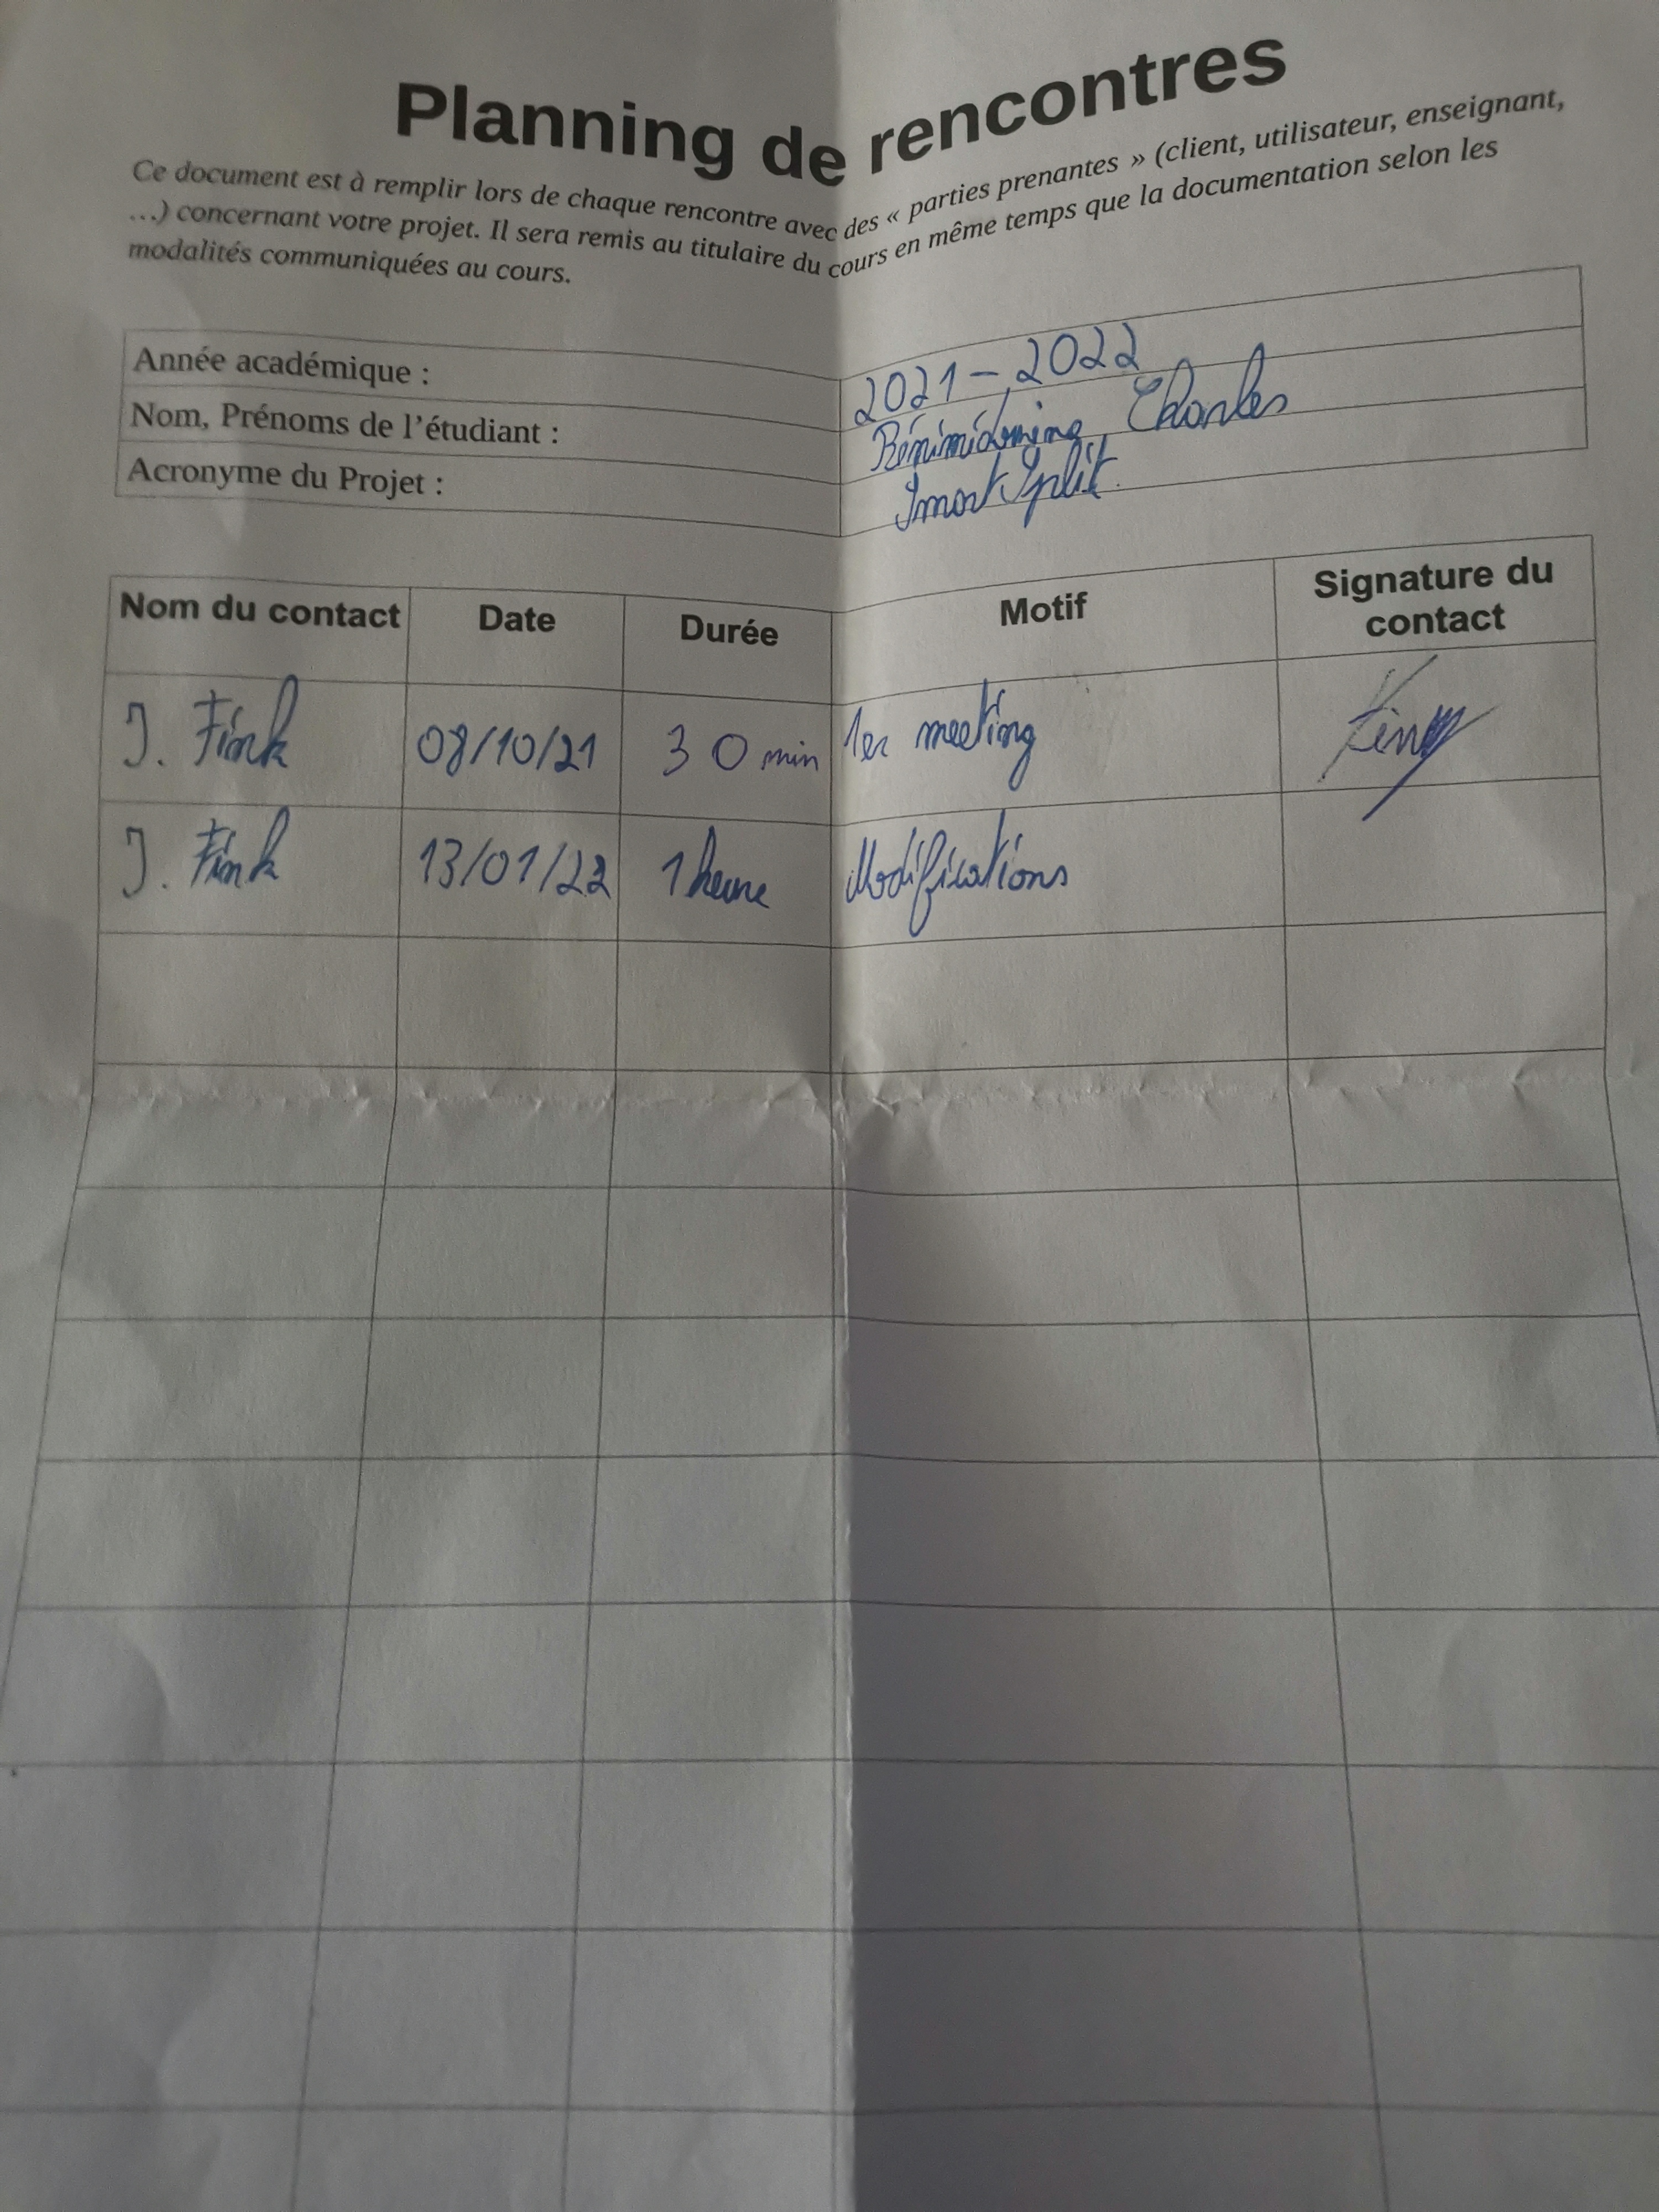 Planning de rencontres
Ce document est à remplir lors de chaque rencontre avec des « parties prenantes » (client, utilisateur, enseignant,
…) concernant votre projet. Il sera remis au titulaire du cours en même temps que la documentation selon les
modalités communiquées au cours.
Année académique : 2021-2022
Nom, Prénoms de l'étudiant : Charles
Acronyme du Projet : SmartSplit
Nom du contact Date Durée Motif Signature du contact
J. Fink 08/10/21 30 min 1er meeting
J. Fink 13/01/22 1 heure Modifications